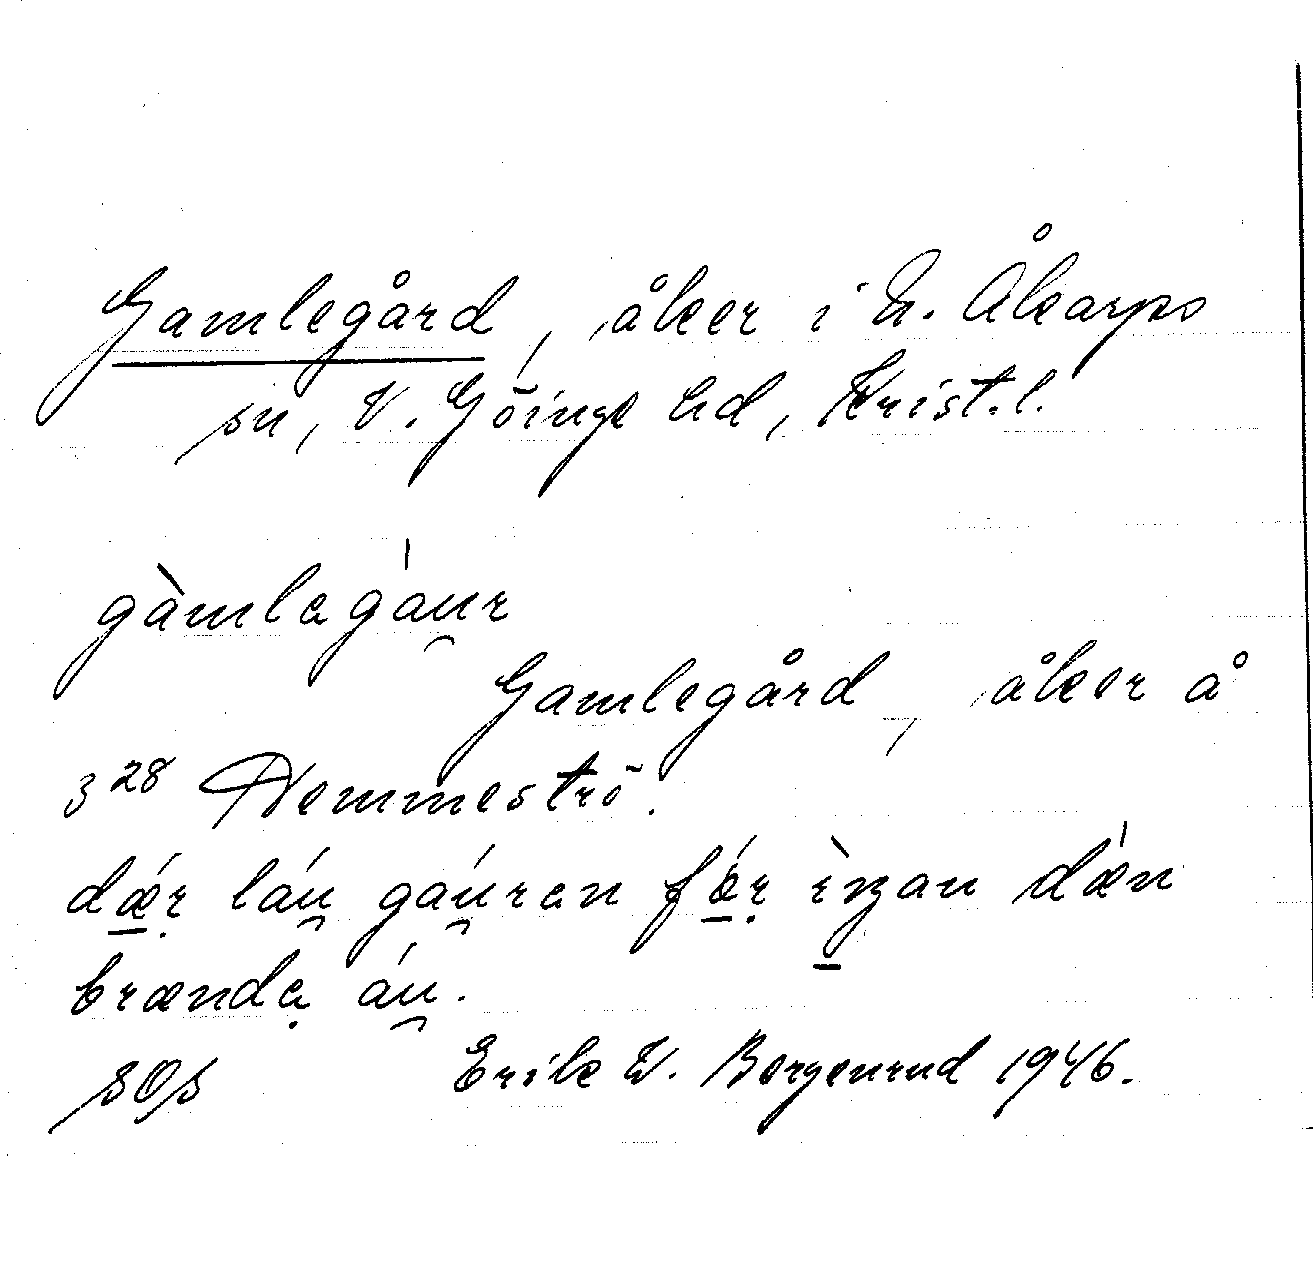 Gamlegård, åker i N. Åkarps
sn, V. Göinge hd, Krist. l.
gàmlegáur
Gamlegård, åker å
3²⁸ Hemmeströ.
dǽr láu gáuren fǽr ìŋan dǽn
brænde áu.
SOS Erik W. Bergenrud 1946.